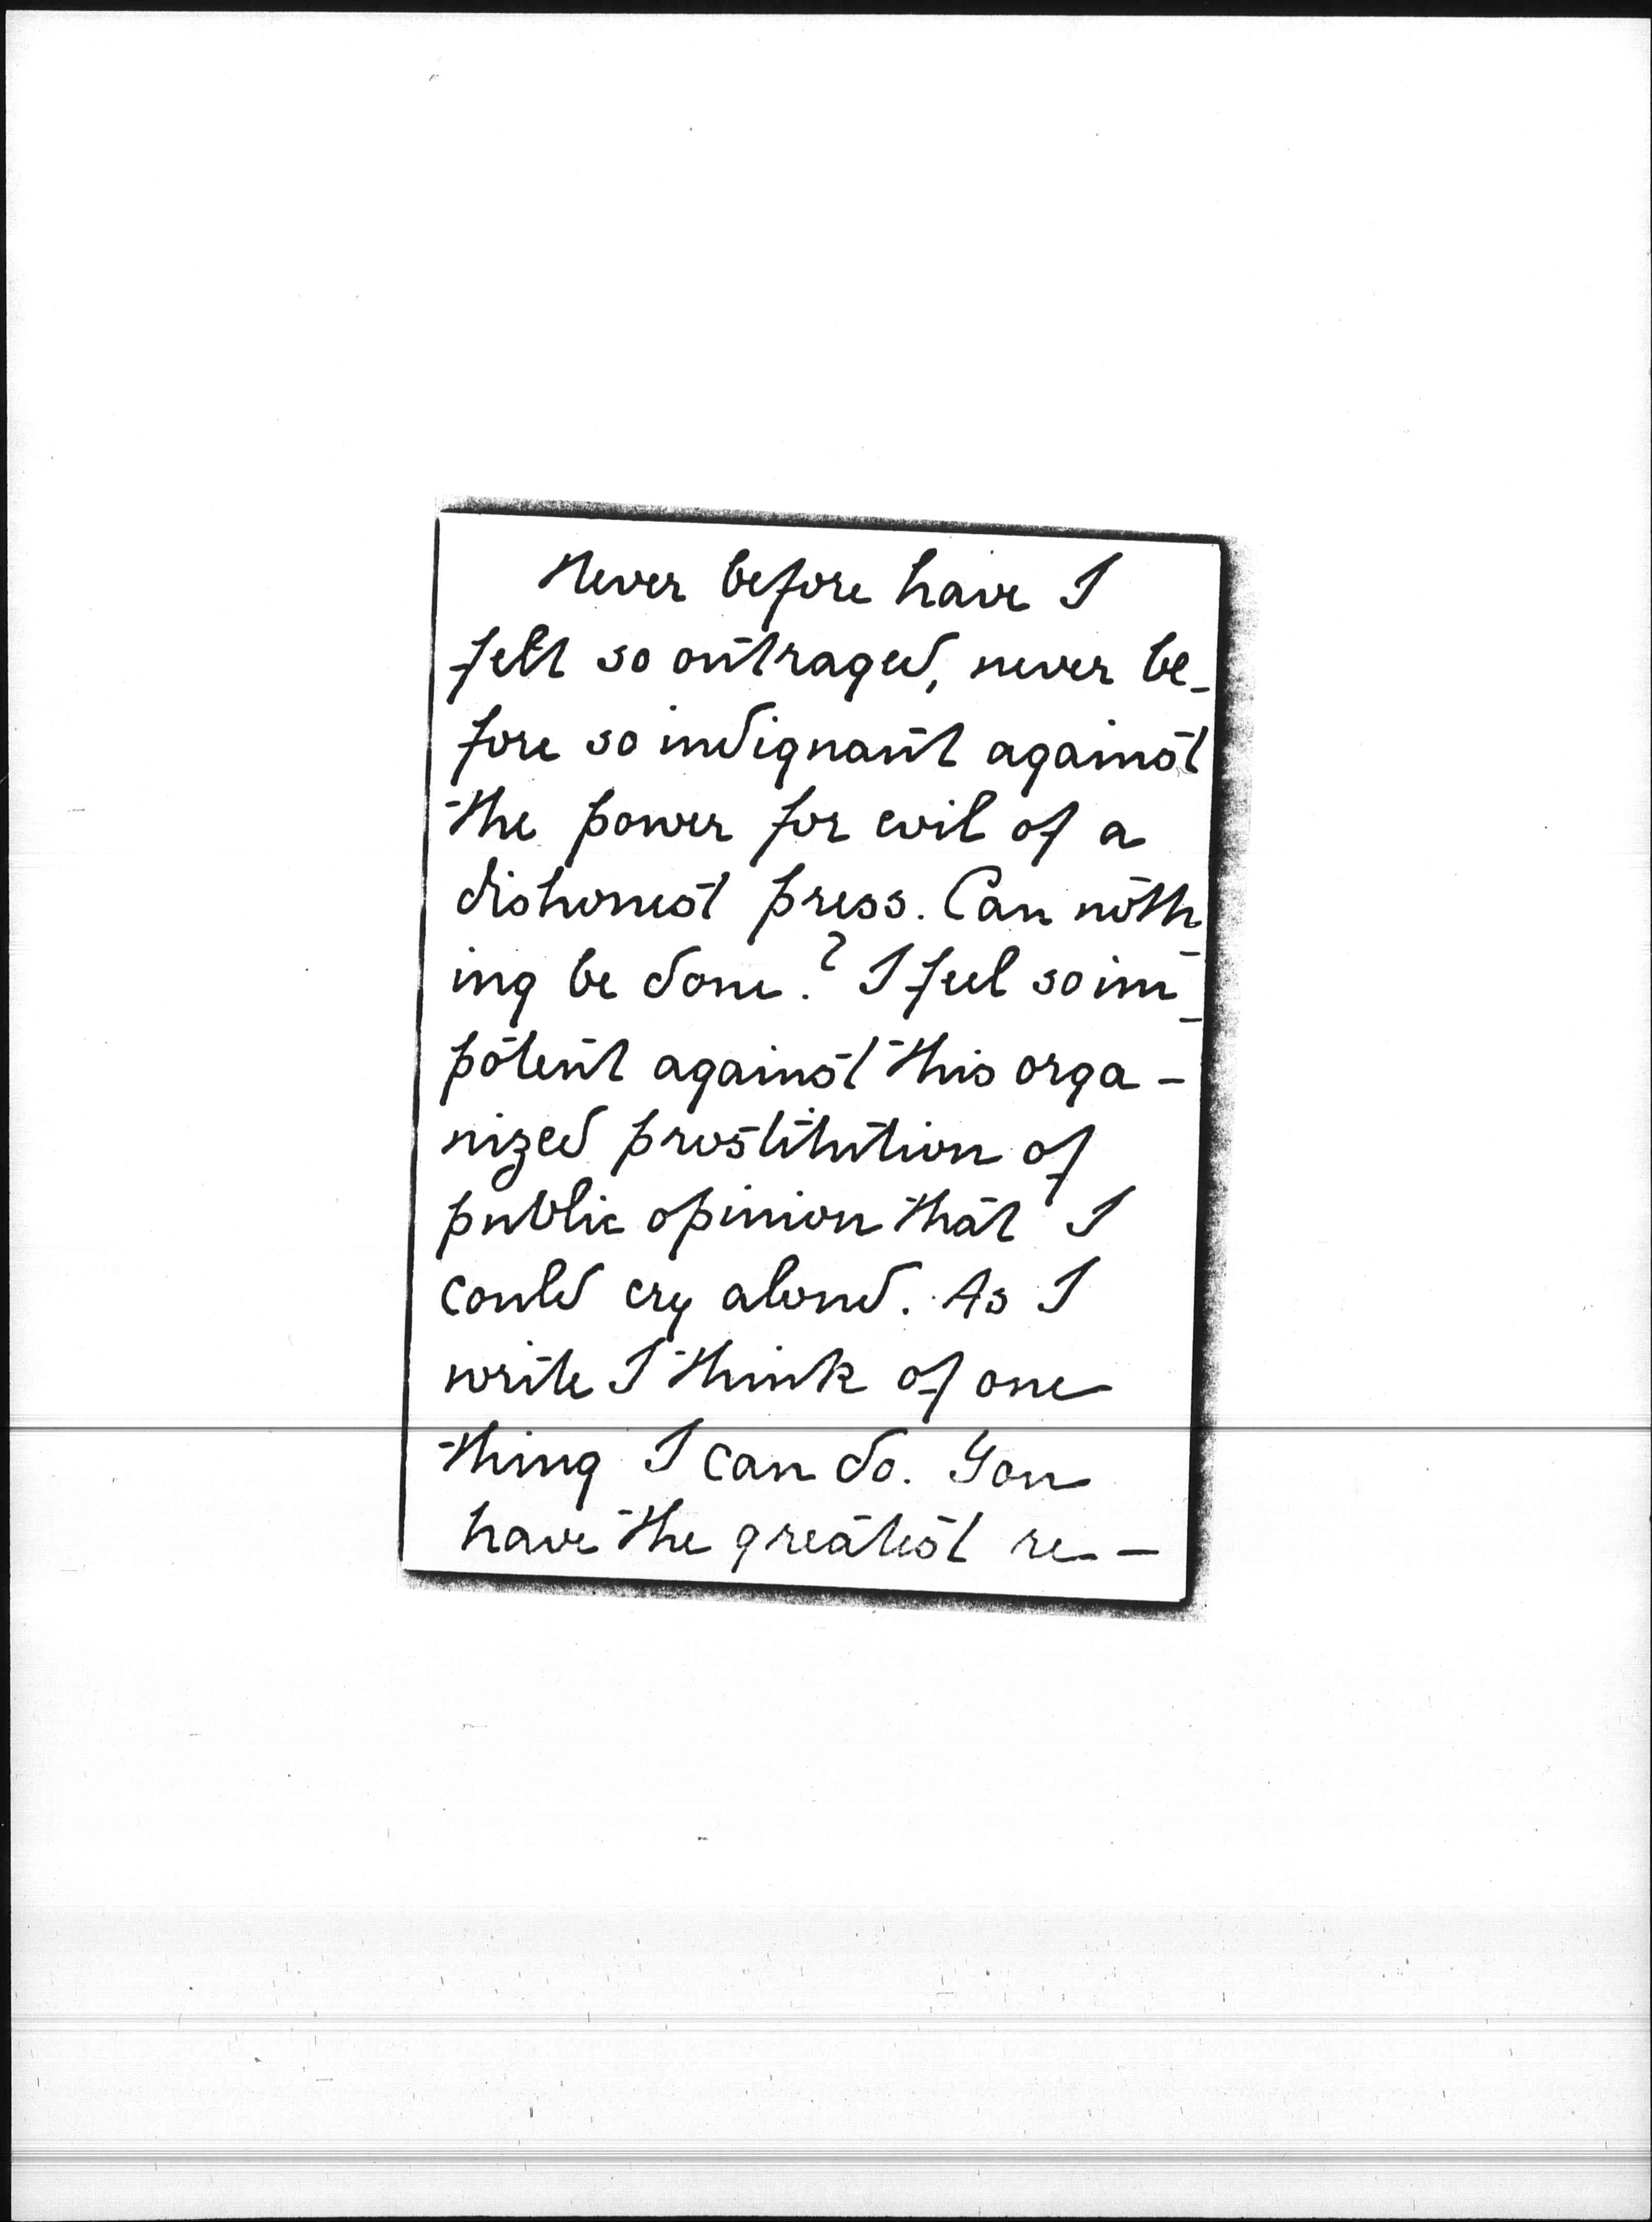 Never before have I
felt so outraged, never be-
fore so indignant against
the power for evil of a
dishonest press. Can noth
ing be done? I feel so im-
potent against this orga-
nized prostitution of
public opinion that I
could cry aloud. As I
write I think of one
thing I can do. You
have the greatest re-